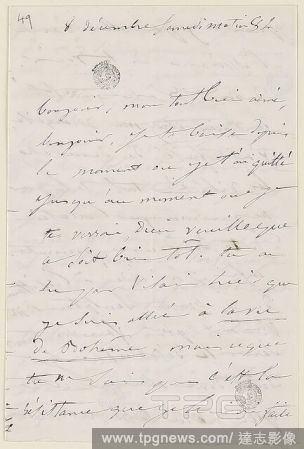 49
8 décembre Samedi matin 8 h
bonjour, mon tout bien aimé,
bonjour, je te baise depuis
le moment où je t'ai quitté
jusqu'au moment où je
te verrai dieu veuille que
ce soit bientôt. tu as
vu par Vilain hier que
je suis allée à la vie
de Bohème. mais ce que
tu ne sais pas c'est la
résistance que j'ai faite
www.tpgnews.com/達志影像